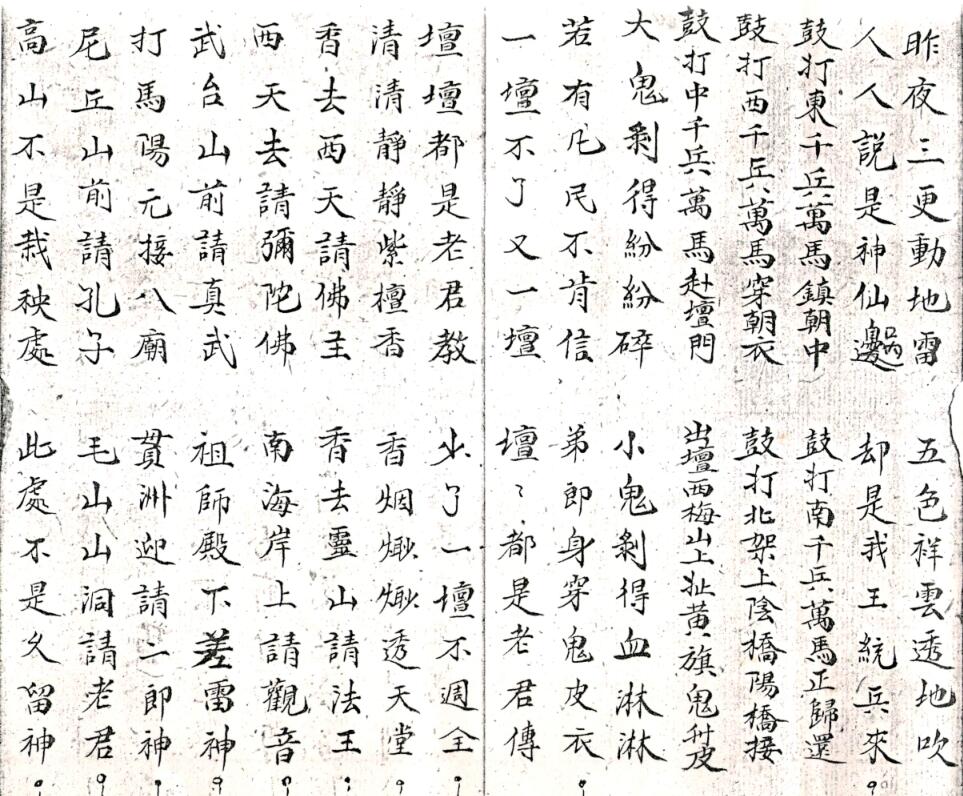 昨夜三更動地雷 五色祥雲透地吹
人人説是神仙邊 却是我王統兵來
鼓打東千兵萬馬鎮朝中 鼓打南千兵萬馬正歸還
鼓打西千兵萬馬穿朝衣 鼓打北架上陰橋陽橋接
鼓打中千兵萬馬赴壇門 出壇西梅山上扯黄旗鬼升皮
大鬼剩得紛紛碎 小鬼剩得血淋淋
若有凡民不肯信 弟郎身穿鬼皮衣
一壇不了又一壇 壇〻都是老君傳
壇壇都是老君教 少了一壇不週全
清清靜靜紫檀香 香烟𤇆𤇆透天堂
香去西天請佛主 香去靈山請法王
西天去請彌陀佛 南海岸上請觀音
武台山前請真武 祖師殿下差雷神
打馬陽元接八廟 貫洲迎請二郎神
尼丘山前請孔子 毛山山洞請老君
高山不是栽秧處 此處不是久留神